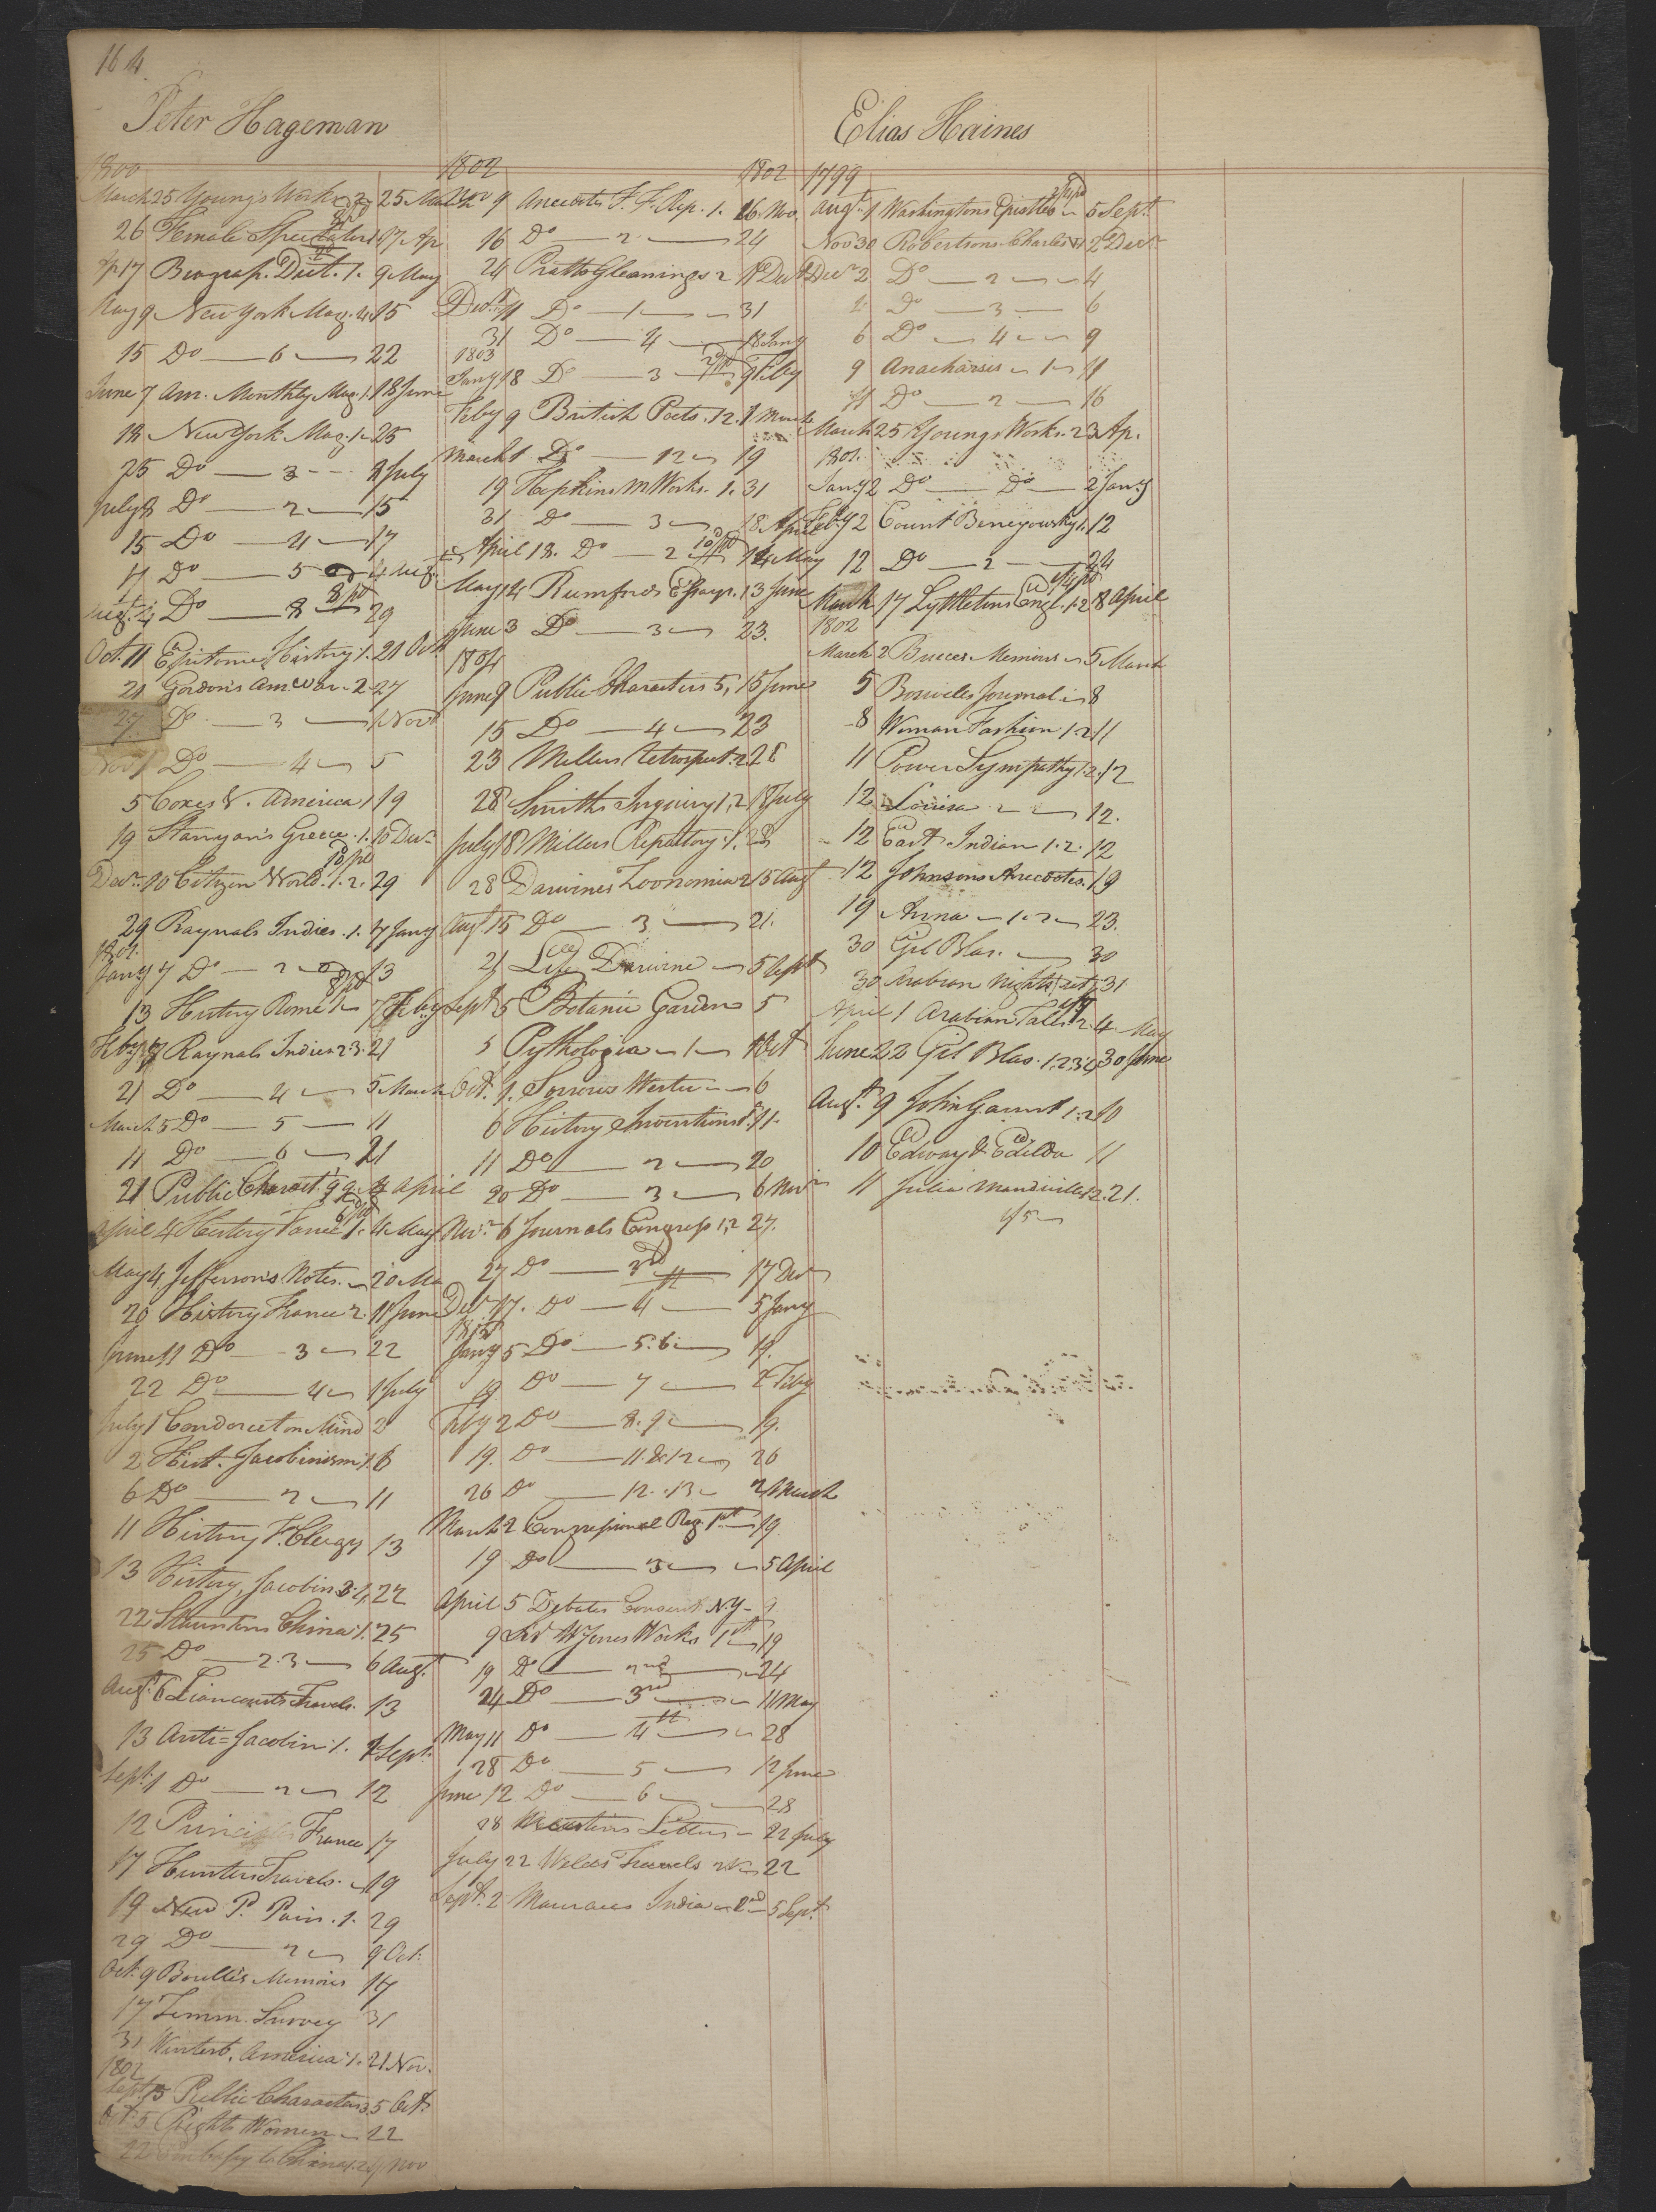 164.
Peter Hageman
1800
March 25 Young's Works 2 25 March
26 Female Spectator 1 17 Ap
Ap 17 Biograp. Dict. 1. 9 May
May 9 New York Mag. 4 15
15 Do — 6 — 22
June 7 Am. Monthly Mag. 1. 18 June
18 New York Mag. 1 25
25 Do — 3 — 8 July
July 8 Do — 2 — 15
15 Do — 4 — 17
17 Do — 5 4 Aug.
Augt. 4 Do — 8 — 29
Oct. 11 Epitome History 1. 21 Oct
21 Gordon's Am War. 2. 27
27. Do — 3 — 1 Novr
Nov 1 Do — 4 — 5
5 Coxes V. America 1 19
19 Stanyan's Greece. 1. 10 Decr
Decr. 10 Citizen World. 1. 2. 29
29 Raynals Indies. 1. 7 Jany
1801.
Jany 7 Do — 2 — 13
13 History Rome 1 — 7 Feby
Feby 7 Raynals Indies 2.3. 21
21 Do — 4 — 5 March
March 5 Do — 5 — 11
11 Do — 6 — 21
21 Public Charact. 4 April
April 4 History France 1. 4 May
May 4 Jefferson's Notes. — 20 Ma
20 History France 2. 11 June
June 11 Do — 3 — 22
22 Do — 4 — 1 July
July 1 Condorcet on Mind 2
2 Hist. Jacobinism 1. 6
6 Do — 2 — 11
11 History F. Clergy 13
13 History Jacobin 3. 4. 22
22 Stauntons China 1. 25
25 Do — 2.3 — 6 Augt.
Augt. 6 Liancourts Travels. 13
13 Anti=Jacobin 1. 1 Sept.
Sept. 1 Do — 2 — 12
12 Princip France 17
17 Hunters Travels. — 19
19 New P. Pain. 1. 29
29 Do — 2 — 9 Oct.
Oct. 9 Bouille's Memoirs 17
17 Zimm. Survey 31
31 Winterb. America 1. 21 Nov.
1802
Sept. 15 Public Characters 5 Oct.
Oct. 5 Rights Women — 22
22 Embassy to China 1. Nov
1802 1802
Nov 9 Anecdotes F. F. Rep. 1. 16. Nov.
16 Do — 2 — 24
24 Pratts Gleanings 2 11 Decr
Decr. 11 Do — 1 — 31
31 Do — 4 — 18 Jany
1803
Jany 18 Do — 3 — 9 Feby
Feby 9 British Poets. 12. 1 March
March 1 Do — 12 — 19
19 Hopkins M Works. 1. 31
31 Do — 3 — 18 April
April 18. Do — 2 14 May
May 14 Rumfords Essays. 1 3 June
June 3 Do — 3 — 23.
1804
June 9 Public Characters 5, 15 June
15 Do — 4 — 23
23 Millers Retrospect. 2 28
28 Smiths Inquiry 1, 2 18 July
July 18 Millers Repository 1. 28
28 Darwines Zoonomia 2 15 Augt
Augt. 15 Do — 3 — 21.
21 Life Darwine — 5 Sept
Sept 5 Botanic Garden 5
5 Pythologia — 1 — 1 Oct
Oct. 1. Sorrows Werter — 6
6 History Inventions 1. 11.
11 Do — 2 — 20
20 Do — 3 — 6 Novr
Novr. 6 Journals Congress 1, 2 27.
27 Do — 3rd — 17 Decr
Decr 17. Do — 4 — 5 Jany
1805
Jany 5 Do — 5.6 — 19.
19 Do — 7 — 2 Feby
Feby 2 Do — 8.9 — 19.
19. Do — 11 & 12 — 26
26 Do — 12. 13 — 2 March
March 2 Congressional Reg. 1st — 19
19 Do — 3 — 5 April
April 5 Debates Convent N.Y — 9
9 Sir W Jones Works 1st — 19
19 Do — 2nd — 24
24 Do — 3rd — 11 May
May 11 Do — 4th — 28
28 Do — 5 — 12 June
June 12 Do — 6 — 28
28 Letters — 22 July
July 22 Welds Travels 22
Septr. 2 Maurices India — 2nd — 5 Sept.
Elias Haines
1799
Augt. 1 Washingtons Epistles — 5 Septr.
Nov 30 Robertsons Charles V 1 2 Decr
Decr 2 Do — 2 — 4
4 Do — 3 — 6
6 Do — 4 — 9
9 Anacharsis — 1 — 11
11 Do — 2 — 16
March 25 Youngs Works. 2 3 Ap.
1801.
Jany 2 Do — Do — 2 Jany
Feby 2 Count Benyowsky 1. 12
12 Do — 2 — 24
March 17 Lyttletons Engl. 1.2 8 April
1802
March 2 Bucces Memoirs — 5 March
5 Boswells Journal — 8
8 Woman Fashion 1.2 11
11 Power Sympathy 1.2. 12
12 Louisa — 12.
12 East Indian 1.2. 12
12 Johnsons Anecdotes. 19
19 Anna — 1.2 — 23.
30 Gil Blas. — 30
30 Arabian Nights 31
April 1 Arabian Tales 4 May
June 22 Gil Blas. 1.2.3.4 30 June
Augt. 9 John Gaunt 1.2 10
10 Edway & Edilda 11
11 Julia Mandiville 1.2. 21.